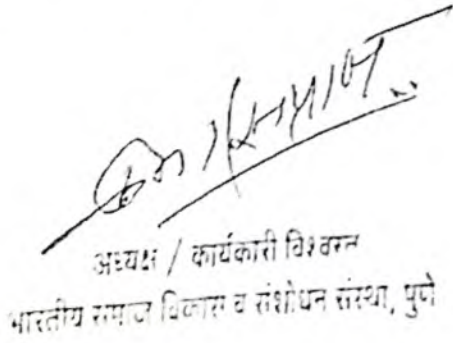 अध्यक्ष / कार्यकारी विश्वस्त
भारतीय समाज विकास व संशोधन संस्था, पुणे